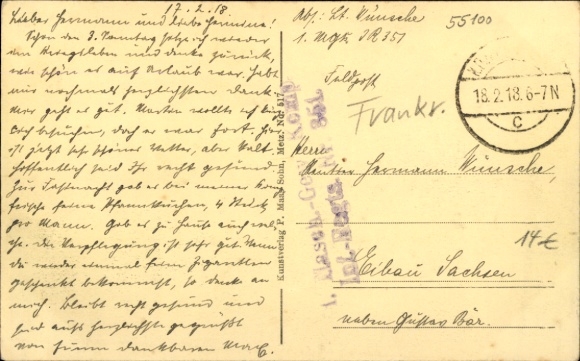 17.2.18
Lieber Hermann und liebe Hermine!
Schon den 3. Sonntag sitze ich wieder
im Kriegsleben und denke zurück,
wie schön es auf Urlaub war. Habt
nur nochmals herzlichsten Dank.
Mir geht es gut. Martin wollte ich
besuchen, doch er war fort. Hier
ist jetzt sehr schönes Wetter, aber kalt.
Hoffentlich seid Ihr recht gesund.
Zur Fastnacht gab es bei meiner Komp.
frische feine Pfannkuchen, 4 Stück
pro Mann. Gab es zu Hause auch
che. Die Verpflegung ist sehr gut. Wenn
du wieder einmal feine Zigaretten
geschenkt bekommst, so denke an
mich. Bleibt recht gesund und
seid aufs herzlichste gegrüßt
von Eurem dankbaren Max.
Kunstverlag P. Mann Sohn, Metz. No.
Abs: Lt. Wünsche
1. MGK IR 351
55100
Feldpost
Frankr.
18.2.18.6-7N
c
1. Masch.-Gew.-Komp.
Inf.-Regt. 351
Herrn
Rentier Hermann Wünsche,
Eibau Sachsen
neben Gustav Bär.
14€